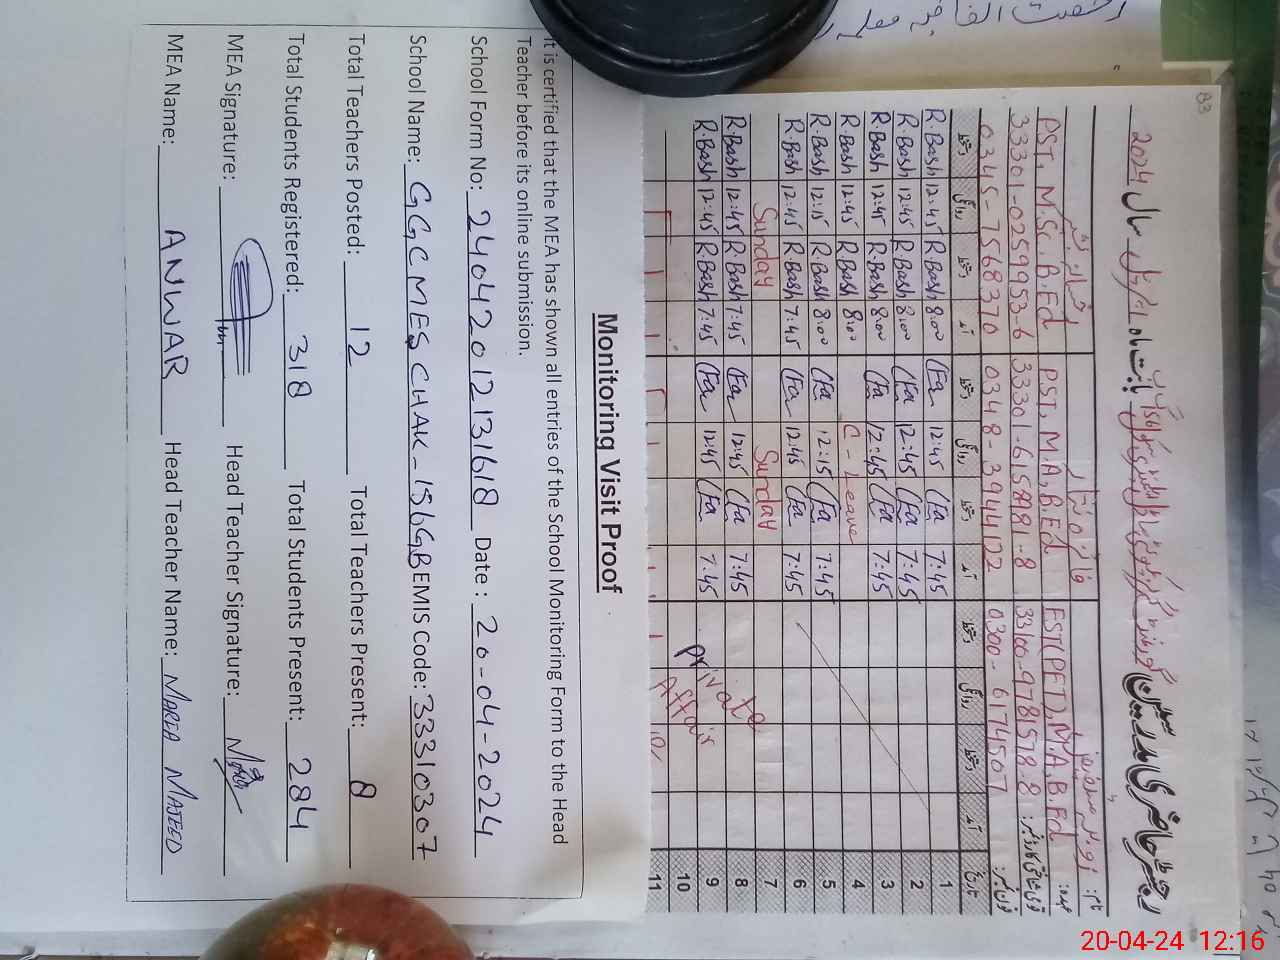 83
رجسٹر حاضری مدرسین
بابت ماہ اپریل سال 2024
نام:
عہدہ: EST(PET), M.A, B.Ed PST, M.A, B.Ed PST, M.Sc, B.Ed
قومی شناختی کارڈ نمبر: 33100-9781578-8 33301-6158981-8 33301-0259953-6
فون نمبر: 0300-6174507 0348-3944122 0345-7568370
تاریخ آمد دستخط روانگی دستخط آمد دستخط روانگی دستخط آمد دستخط روانگی دستخط
1 7:45 (Fa 12:45 (Fa 8:00 R.Bash 12:45 R.Bash
2 7:45 (Fa 12:45 (Fa 8:00 R.Bash 12:45 R.Bash
3 7:45 (Fa 12:45 (Fa 8:00 R.Bash 12:45 R.Bash
4 C-Leave 8:00 R.Bash 12:45 R.Bash
5 7:45 (Fa 12:15 (Fa 8:00 R.Bash 12:15 R.Bash
6 7:45 (Fa 12:45 (Fa 7:45 R.Bash 12:45 R.Bash
7 Sunday Sunday
8 7:45 (Fa 12:45 (Fa 7:45 R.Bash 12:45 R.Bash
9 7:45 (Fa 12:45 (Fa 7:45 R.Bash 12:45 R.Bash
10 private
11 Affair
Monitoring Visit Proof
It is certified that the MEA has shown all entries of the School Monitoring Form to the Head
Teacher before its online submission.
School Form No: 24042012131618 Date: 20-04-2024
School Name: GGCMES CHAK-156GB EMIS Code: 33310307
Total Teachers Posted: 12 Total Teachers Present: 8
Total Students Registered: 318 Total Students Present: 284
MEA Signature: Head Teacher Signature:
MEA Name: ANWAR Head Teacher Name: MARIA MAJEED
20-04-24 12:16